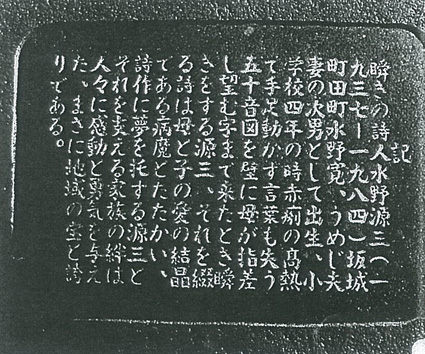 記
瞬きの詩人水野源三(一
九三七ー一九八四)坂城
町田町水野寛、うめじ夫
妻の次男として出生、小
学校四年の時赤痢の高熱
で手足動かず言葉も失う
五十音図を壁に母が指差
し望む字まで来たとき瞬
きをする源三、それを綴
る詩は母と子の愛の結晶
である病魔とたたかい、
詩作に夢を托する源三と
それを支える家族の絆は
人々に感動と勇気を与え
た、まさに地域の宝と誇
りである。